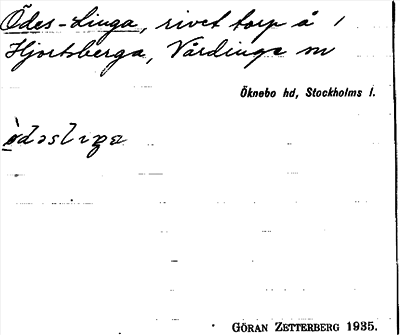 Ödes-Linga, rivet torp å /
Hjortsberga, Vårdinge sn
Öknebo hd, Stockholms l.
GÖRAN ZETTERBERG 1935.